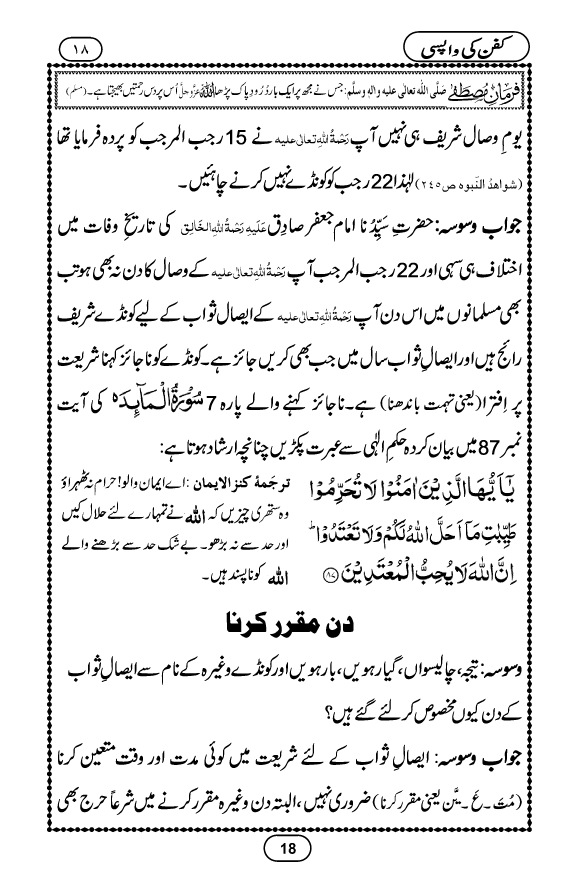 کفن کی واپسی
١٨
فرمانِ مصطفٰے صَلَّی اللہ تعالٰی علیہ واٰلہٖ وسلَّم: جس نے مجھ پر ایک بار دُرُودِ پاک پڑھا اللہ عَزَّوَجَلَّ اُس پر دس رحمتیں بھیجتا ہے۔ (مسلم)
یومِ وِصال شریف ہی نہیں آپ رَحْمَۃُ اللہِ تعالیٰ علیہ نے 15 رجب المرجب کو پردہ فرمایا تھا
(شواھدُ النَّبوہ ص٢٤٥) لہٰذا 22 رجب کو کونڈے نہیں کرنے چاہئیں۔
جوابِ وسوسہ: حضرتِ سیِّدُنا امام جعفر صادِق عَلَیہِ رَحْمَۃُ اللہِ الخَالِق کی تاریخِ وفات میں
اختلاف ہی سہی اور 22 رجب المرجب آپ رَحْمَۃُ اللہِ تعالیٰ علیہ کے وصال کا دن نہ بھی ہو تب
بھی مسلمانوں میں اس دن آپ رَحْمَۃُ اللہِ تعالیٰ علیہ کے ایصالِ ثواب کے لیے کونڈے شریف
رائج ہیں اور ایصالِ ثواب سال میں جب بھی کریں جائز ہے۔ کونڈے کو ناجائز کہنا شریعت
پر اِفترا (یعنی تہمت باندھنا) ہے۔ ناجائز کہنے والے پارہ 7 سُوْرَۃُ الْمَآئِدَہ کی آیت
نمبر 87 میں بیان کردہ حکمِ الٰہی سے عبرت پکڑیں چنانچہ ارشاد ہوتا ہے:
یٰۤاَیُّهَا الَّذِیْنَ اٰمَنُوْا لَا تُحَرِّمُوْا
طَیِّبٰتِ مَاۤ اَحَلَّ اللّٰهُ لَكُمْ وَلَا تَعْتَدُوْاؕ
اِنَّ اللّٰهَ لَا یُحِبُّ الْمُعْتَدِیْنَ ﴿۸۷﴾
ترجَمۂ کنز الایمان: اے ایمان والو! حرام نہ ٹھہراؤ
وہ ستھری چیزیں کہ اللہ نے تمہارے لئے حلال کیں
اور حد سے نہ بڑھو۔ بے شک حد سے بڑھنے والے
اللہ کو ناپسند ہیں۔
دن مقرر کرنا
وسوسہ: تیجہ، چالیسواں، گیارہویں، بارہویں اور کونڈے وغیرہ کے نام سے ایصالِ ثواب
کے دن کیوں مخصوص کر لئے گئے ہیں؟
جوابِ وسوسہ: ایصالِ ثواب کے لئے شریعت میں کوئی مدت اور وقت متعین کرنا
(مُتَ۔عَ۔یَّن یعنی مقرر کرنا) ضروری نہیں، البتہ دن وغیرہ مقرر کرنے میں شرعاً حرج بھی
18